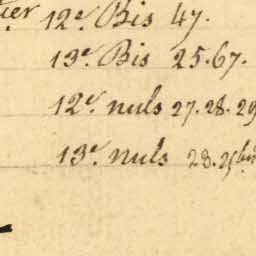 ier 12e. Bis 47.
13e. Bis 25.67.
12e. nuls 27.28.29
13e. nuls 28.